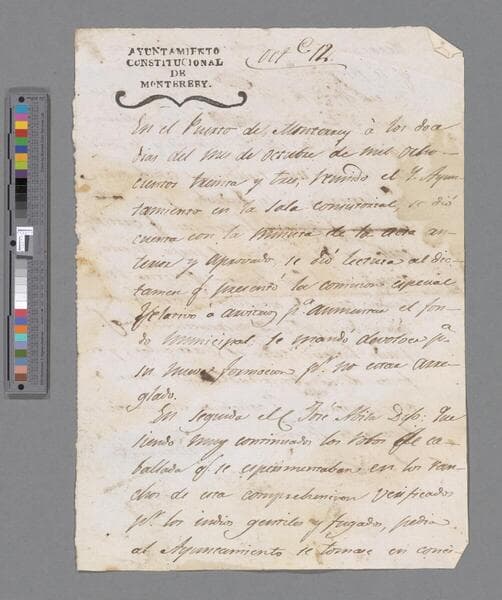 AYUNTAMIENTO
CONSTITUCIONAL
DE
MONTEREY.
Oct.e 12.
En el Puerto de Monterrey á los doce
dias del mes de octubre de mil ocho-
cientos treinta y tres, reunido el Y. Ayun-
tamiento en la sala consistorial, se dió
cuenta con la minuta de la acta an-
terior y aprovado se dió lectura al dic-
tamen q.e presentó la comicion especial
relativo á p.a aumentar el fon-
do municipal se mandó devolver p.a
su nueva formacion p.r no estar arre-
glado.
En seguida el C. José Mita. Dijo: que
siendo muy continuados los robos de ca-
ballada q.e se esperimentaban en los ran-
chos de esta comprehencion verificados
p.r los indios gentiles y fugados, pedia
al Ayuntamiento se tomase en consi-